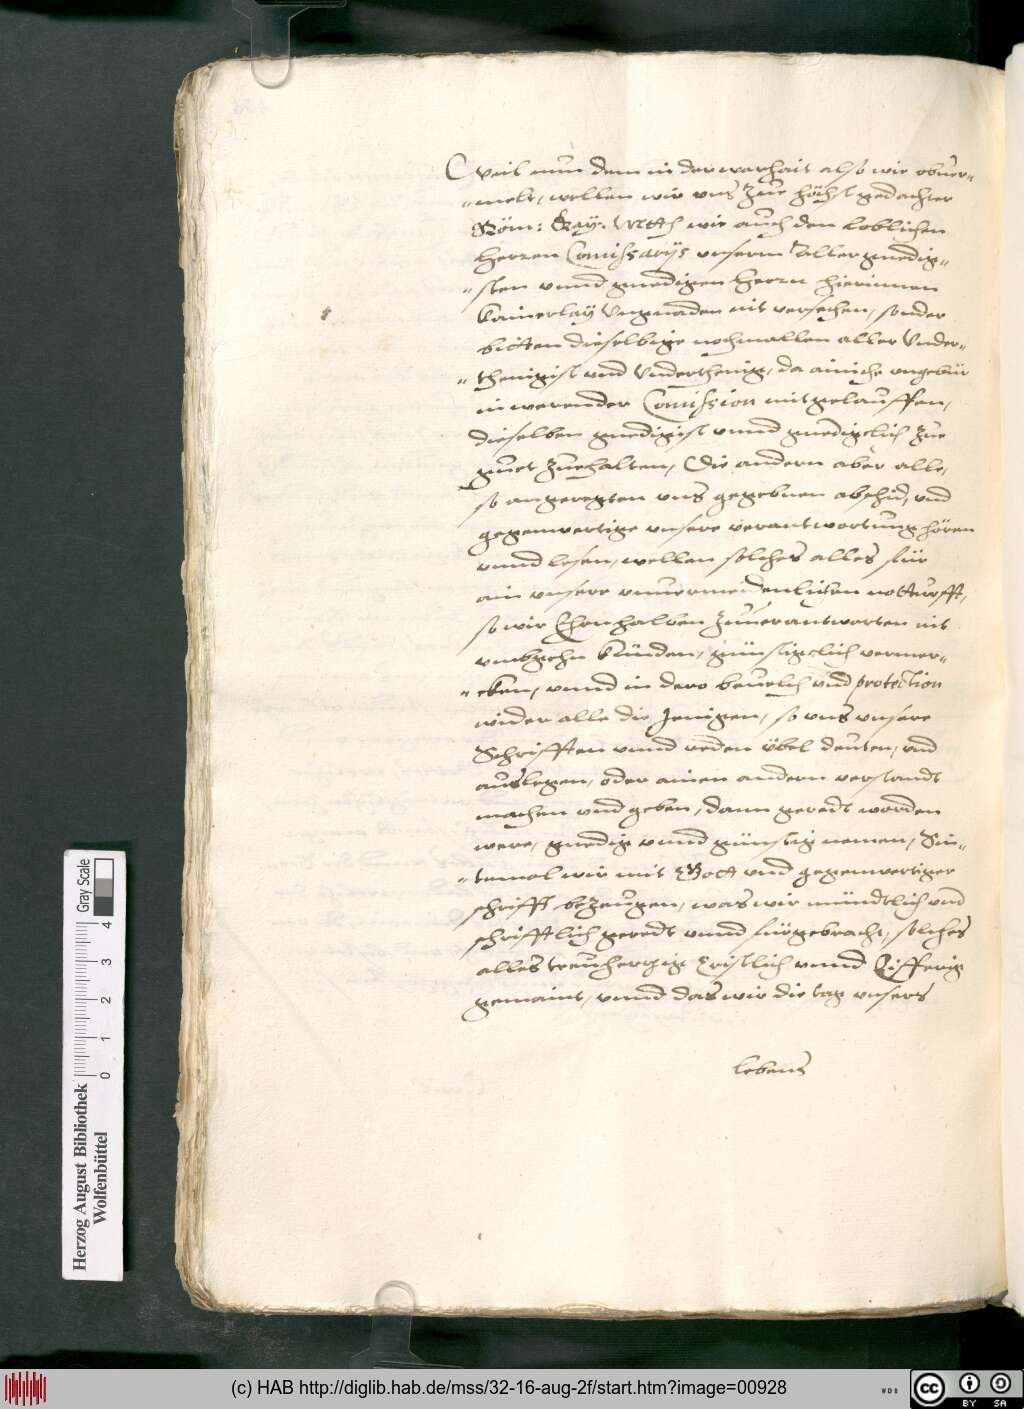 Weil nun dem in der warhait also wie obuer-
-melt, wellen wir vns zue höchst gedachter
Röm: Kay: Mtt: wie auch den loblichen
herren Comissarijs vnserm Allergnedig-
-sten vnnd gnedigen herrn hierinnen
kainerlay Vngnaden nit versehen, sonder
bitten dieselbige nochmallen aller Vnder-
-thenigist vnd Vnderthenig, da ainiche vngebür
in werender Comission mitgelauffen,
dieselben gnedigist vnnd gnedigclich zue
guet zuehalten, Die andern aber alle,
so angeregten vns gegebnen abschid, vnd
gegenwertige vnsere verantwortung hören
vnnd lesen, wellen solches alles für
ain vnsere vnuermeidenlichen notturfft,
so wir Ehrn halben zuuerantworten nit
vmbgehn künden, günstigclich vermer-
-cken, vnnd in dero beuelch vnd protection
wider alle die Jenigen, so vns vnsere
Schrifften vnnd reden übel deuten, vnd
auslegen, oder ainen andern verstandt
machen vnd geben, dann geredt worden
were, gnedig vnnd günstig nemen, Sin-
-temal wir mit Gott vnd gegenwertiger
schrifft bezeugen, was wir mündtlich vnd
schrifftlich geredt vnnd fürgebracht, solches
alles treuhertzig Cristlich vnnd Eifferig
gemaint, vnnd das wir die tag vnsers
lebens
Gray Scale
0 1 2 3 4
Herzog August Bibliothek
Wolfenbüttel
(c) HAB http://diglib.hab.de/mss/32-16-aug-2f/start.htm?image=00928
WDB
cc BY SA